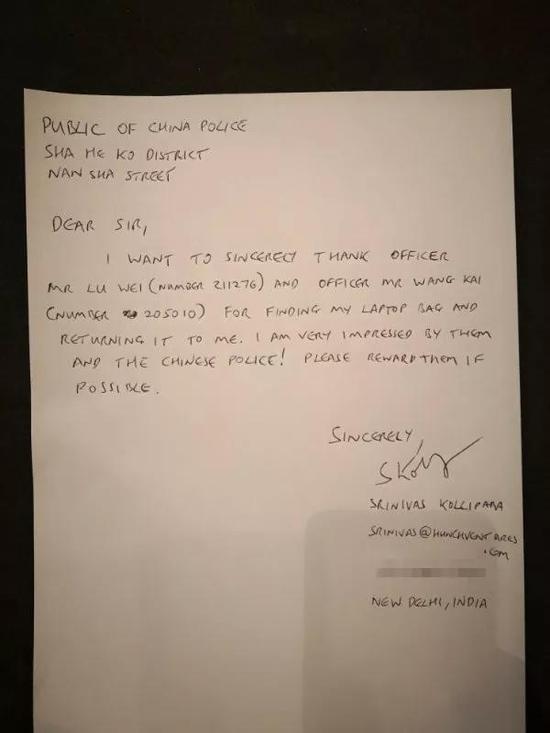 PUBLIC OF CHINA POLICE
SHA HE KO DISTRICT
NAN SHA STREET
DEAR SIR,
I WANT TO SINCERELY THANK OFFICER
MR LU WEI (NUMBER 211276) AND OFFICER MR WANG KAI
(NUMBER 205010) FOR FINDING MY LAPTOP BAG AND
RETURNING IT TO ME. I AM VERY IMPRESSED BY THEM
AND THE CHINESE POLICE! PLEASE REWARD THEM IF
POSSIBLE.
SINCERELY,
SRINIVAS KOLLIPARA
SRINIVAS@HUNCHVENTURES
.COM
NEW DELHI, INDIA